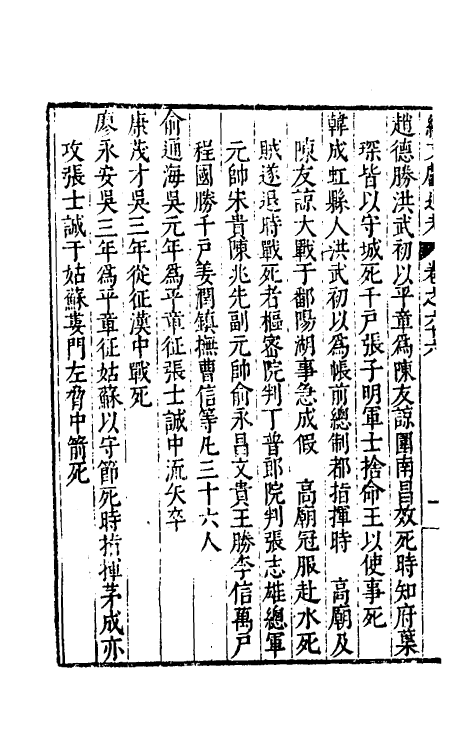 續文獻通考 卷之六十六 一
趙德勝洪武初以平章爲陳友諒圍南昌效死時知府葉
琛皆以守城死千戶張子明軍士捨命王以使事死
韓成虹縣人洪武初以爲帳前總制都指揮時 高廟及
陳友諒大戰于鄱陽湖事急成假 高廟冠服赴水死
賊遂退時戰死者樞密院判丁普郎院判張志雄總軍
元帥宋貴陳兆先副元帥俞永昌文貴王勝李信萬戶
程國勝千戶姜潤鎮撫曹信等凡三十六人
俞通海吳元年爲平章征張士誠中流矢卒
康茂才吳三年從征漢中戰死
廖永安吳三年爲平章征姑蘇以守節死時指揮茅成亦
攻張士誠于姑蘇婁門左脅中箭死